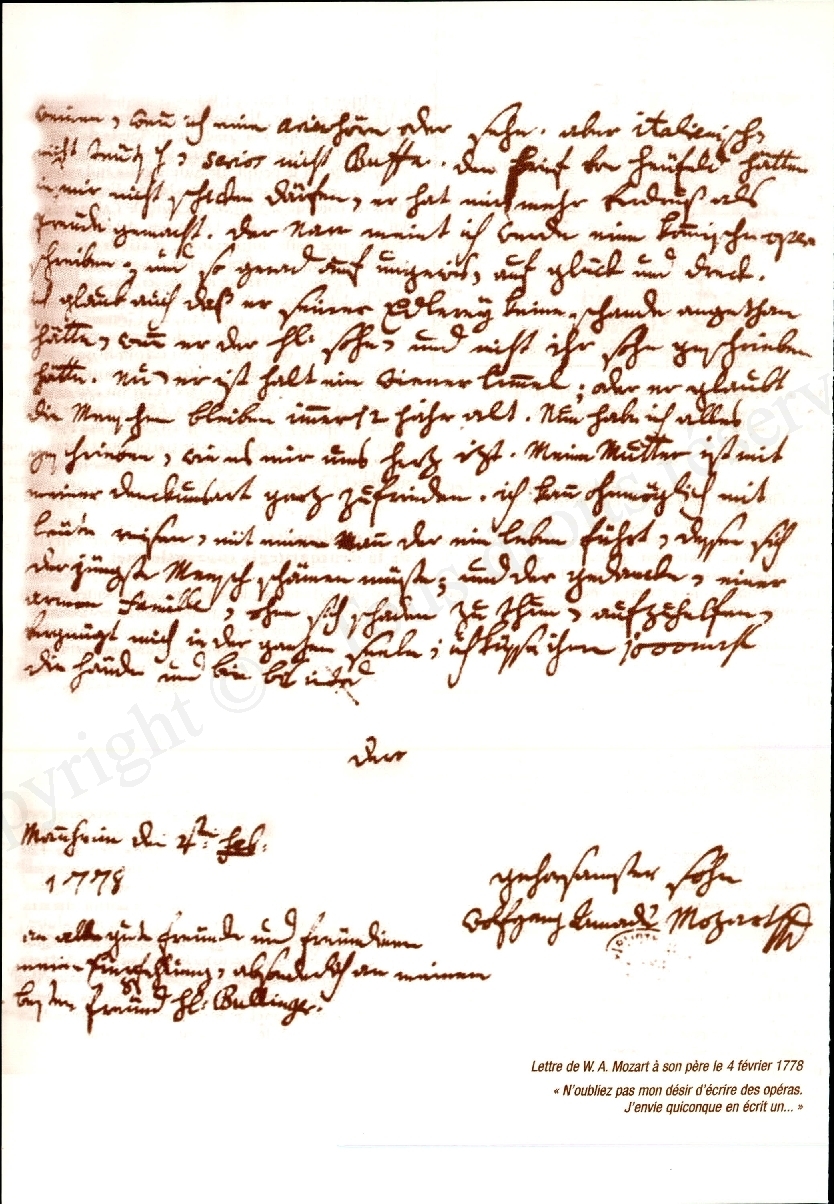 weinen, wenn ich eine aria höre oder sehe. aber italienisch,
nicht teutsch, serios nicht Buffa. den brief von heufeld hätten
sie mir nicht schicken därfen, er hat mir mehr verdruß als
freüde gemacht. der Narr meint ich werde eine komische opera
schreiben; und so gerad auf ungewis, auf glück und dreck.
ich glaub auch daß er seiner Edlerey keine schande angethan
hätte, wenn er der hl: sohn, und nicht ihr sohn geschrieben
hätte. Nu, er ist halt ein Wiener limmel; oder er glaubt
die Menschen bleiben immer 12 jahr alt. Nun habe ich alles
geschrieben, wie es mir ums hertz ist. Meine Mutter ist mit
meiner denckunsart ganz zufrieden. ich kann ohnmöglich mit
leüten reisen, mit einem Mann der ein leben führt, dessen sich
der jüngste Mensch schämen müste; und der gedancke, einer
armen famille, ohne sich schaden zu thun, aufzuhelfen,
vergnügt mich in der ganzen seele; ich küsse ihnen 1000mahl
die hände und bin bis in tod
dero
Mannheim den 4:ten feb:
1778
gehorsamster sohn
Wolfgang Amadè Mozart
an alle gute freünde und freündinen
meine Empfehlung, absonderlich an meinen
besten freünd hl: Bullinger.
Copyright © Tous droits réservés
Lettre de W. A. Mozart à son père le 4 février 1778
« N'oubliez pas mon désir d'écrire des opéras.
J'envie quiconque en écrit un... »